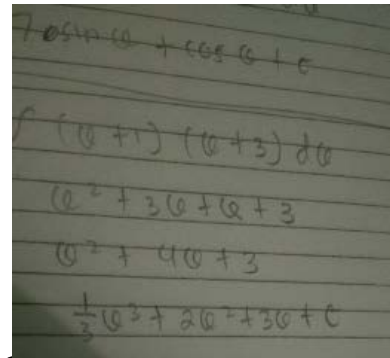 θsin θ + cos θ + c
∫ (θ + 1) (θ + 3) dθ
θ² + 3θ + θ + 3
θ² + 4θ + 3
1/3 θ³ + 2θ² + 3θ + c